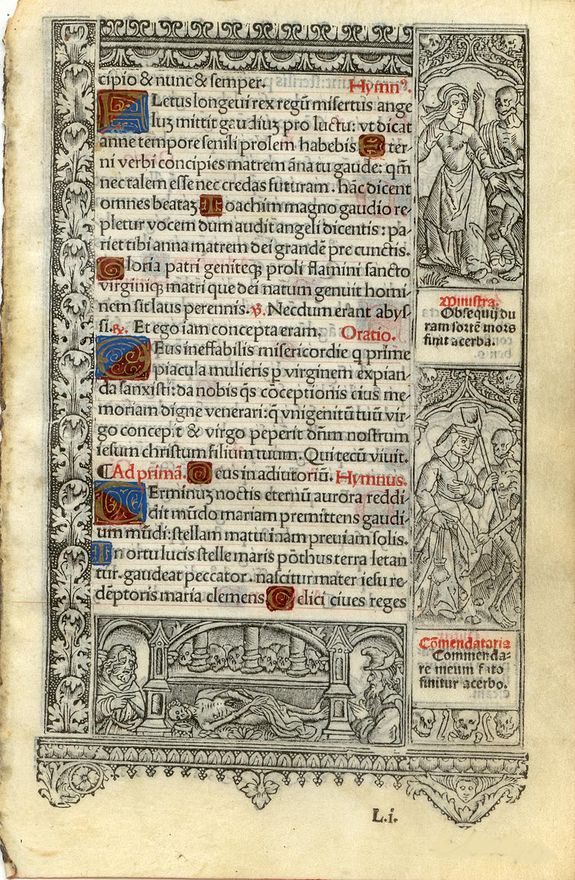 cipio & nunc & semper. Hymnꝰ.
Letus longeui rex regũ misertus ange
luʒ mittit gaudiũʒ pro luctu: vt dicat
anne tempore senili prolem habebis Eter
ni verbi concipies matrem ãna tu gaude: qm̃
nec talem esse nec credas futuram. hãc dicent
omnes beataʒ Ioachim magno gaudio re-
pletur vocem dum audit angeli dicentis: pa-
riet tibi anna matrem dei grandẽ pre cunctis.
Gloria patri genitoqꝫ proli flamini sancto
virginiqꝫ matri que dei natum genuit homi-
nem sit laus perennis. ℣. Necdum erant abys-
si. ℟. Et ego iam concepta eram. Oratio.
DEus ineffabilis misericordie q̃ prime
piacula mulieris p̱ virginem expian
da sanxisti: da nobis q̃s cõceptionis eius me-
moriam digne venerari: q̃ vnigenitũ tuũ vir-
go concepit & virgo peperit dñm nostrum
iesum christum filium tuum. Qui tecũ viuit.
¶Ad primã. Deus in adiutoriũ. Hymnus.
TErminuʒ noctis eternũ aurora reddi-
dit mũdo mariam premittens gaudi-
um mũdi: stellam matutinam preuiam solis.
In ortu lucis stelle maris põthus terra letan
tur. gaudeat peccator. nascitur mater iesu re-
dẽptoris maria clemens Felici ciues reges
Ministra.
Obsequij du
ram sortẽ mors
finit acerba.
Cõmendataria
Commenda-
re meum fato
finitur acerbo.
L.i.